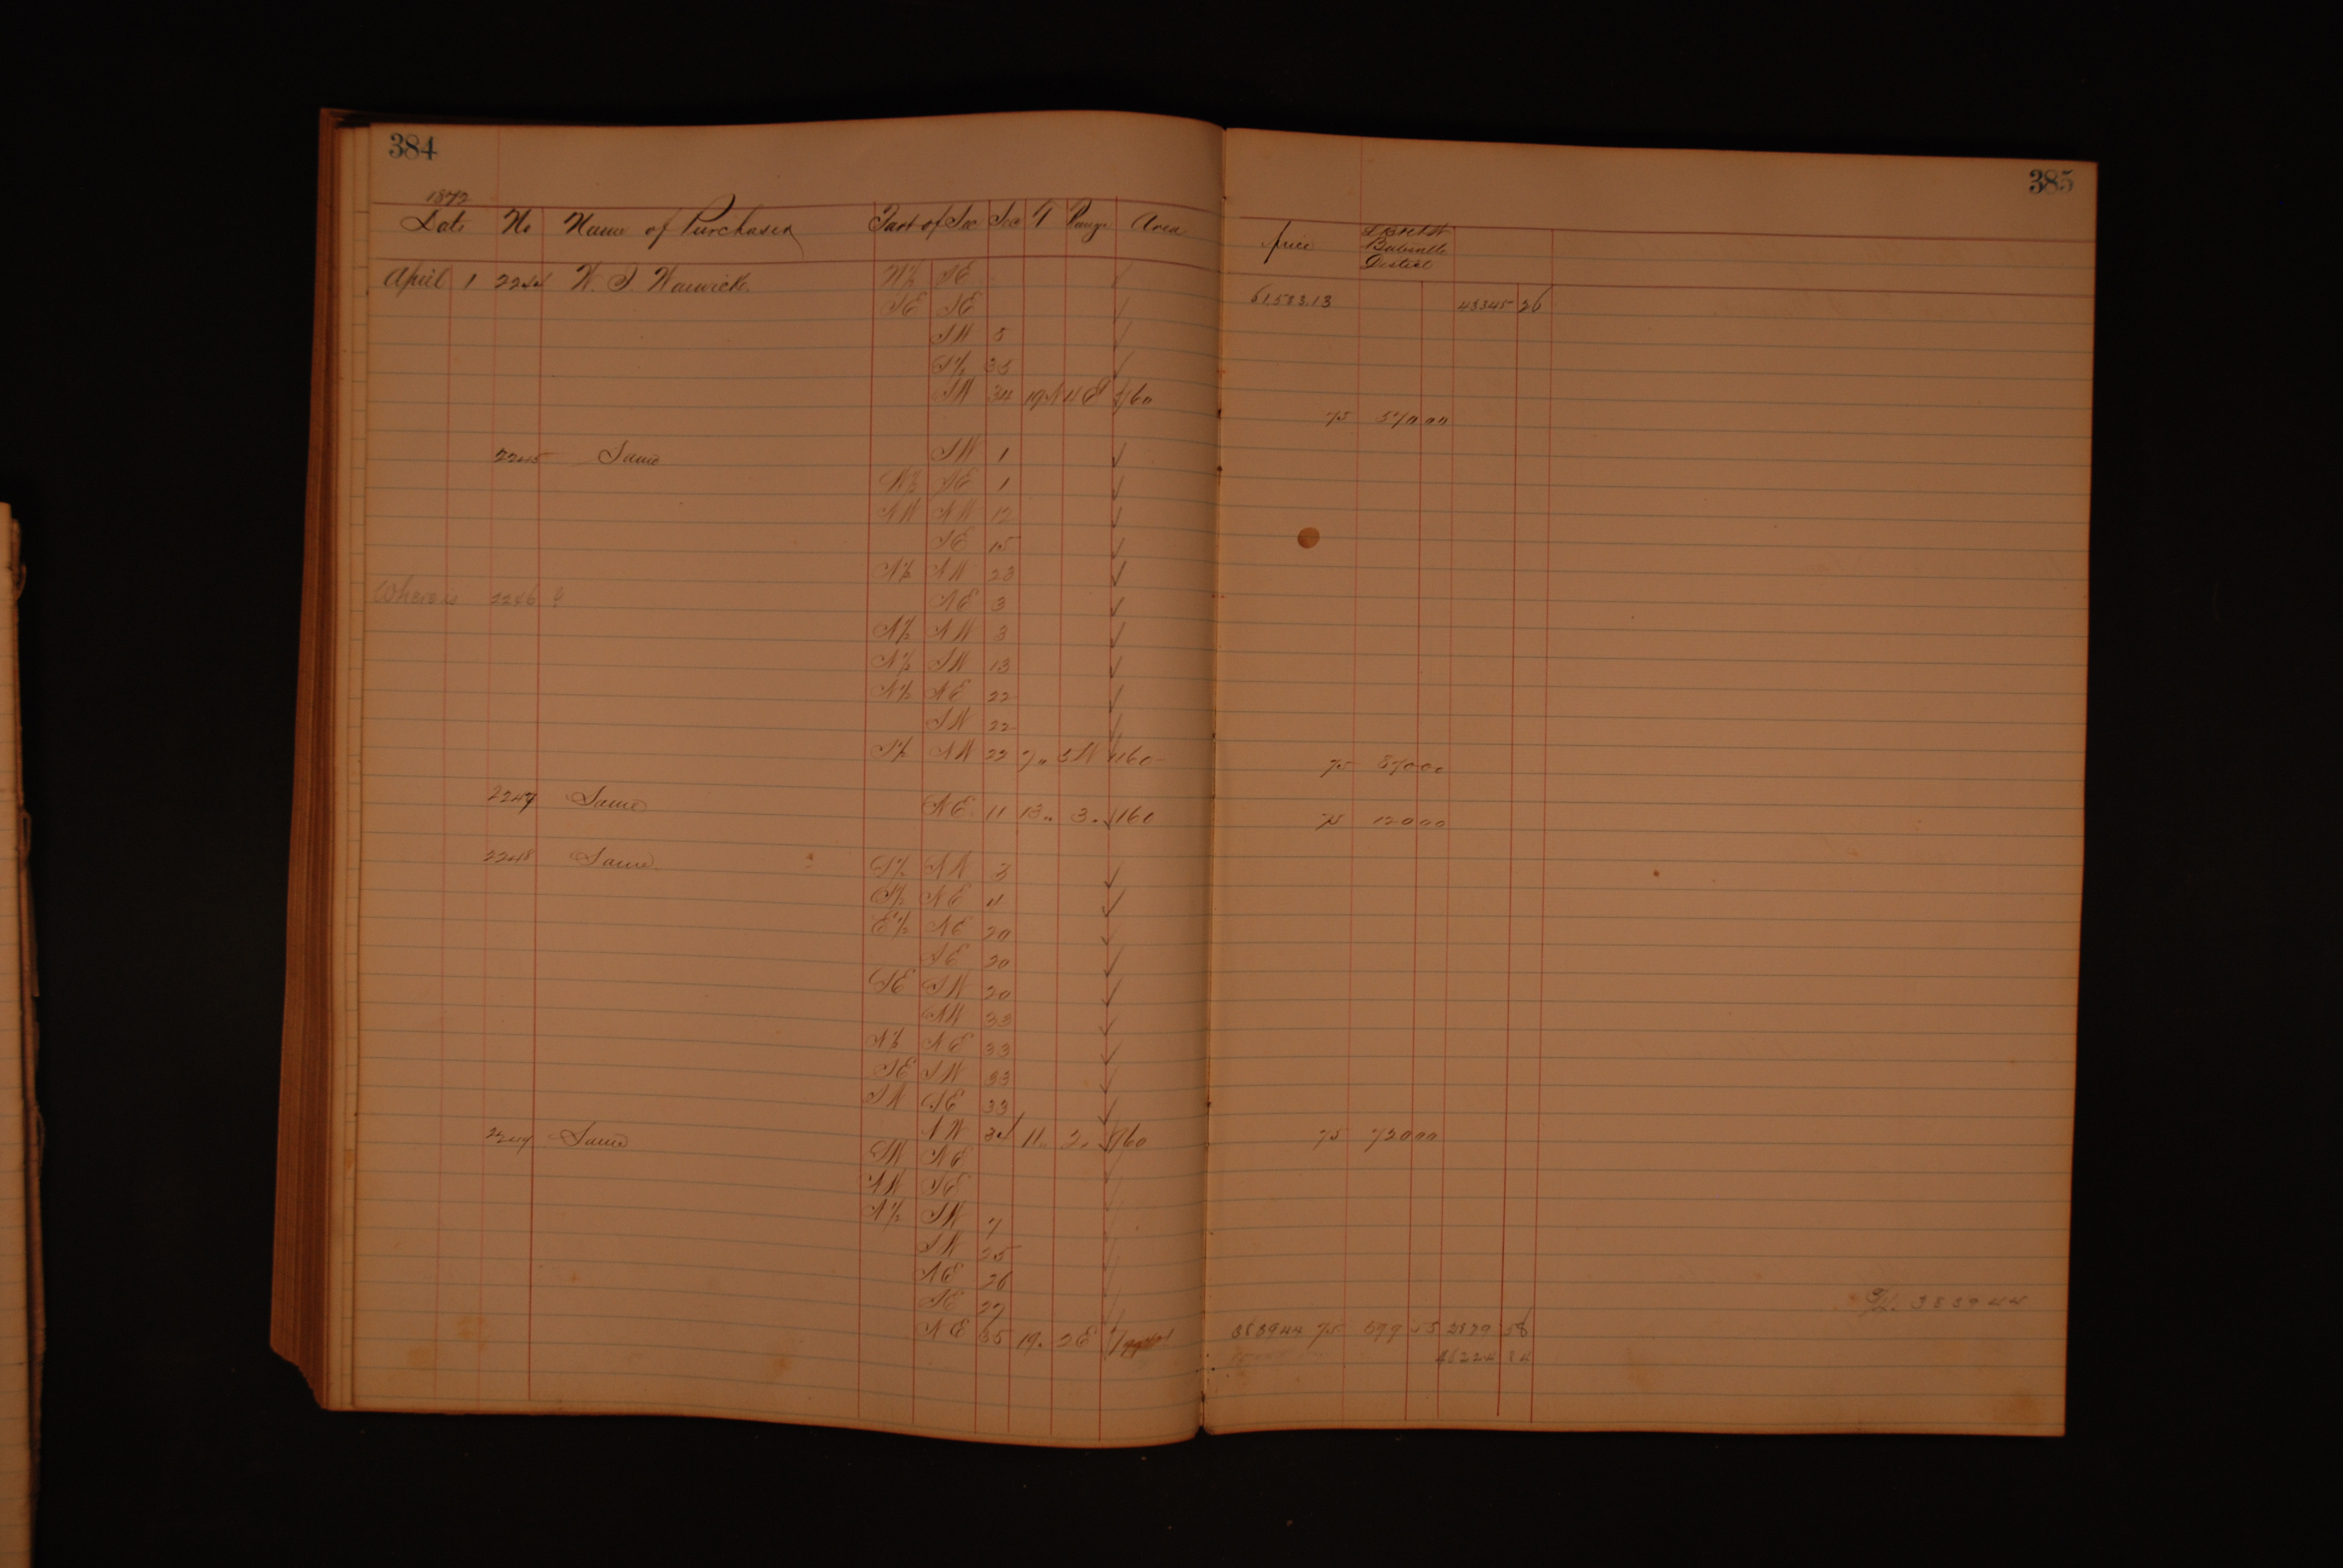 384
1872
Date No Name of Purchaser Part of Sec Sec T Range Area
April 1 2244 W. S. Warwick. W½ SE
SE SE
SW 5
S½ 33
SW 34 19 N 4 E 760
2245 Same SW 1
W½ SE 1
NW NW 12
SE 15
N½ NW 23
Where is 2246 ? NE 3
N½ NW 3
N½ SW 13
N½ NE 22
SW 22
S½ NW 22 7 " 3 W 1160
2247 Same NE. 11 13 " 3 " 160
2248 Same S½ NW 3
S½ NE 11
E½ NE 20
SE 20
SE SW 20
NW 33
N½ NE 33
SE SW 33
SW SE 33
NW 34 11 " 2 " 960
2249 Same SW NE
NW SE
N½ SW 7
SW 25
NE 26
SE 27
NE 35 19 " 2 E
385
Price District
61,583.13 43345 26
75 570 00
75 870 00
75 120 00
75 720 00
383944
75 599 58 2879 58
46224 84